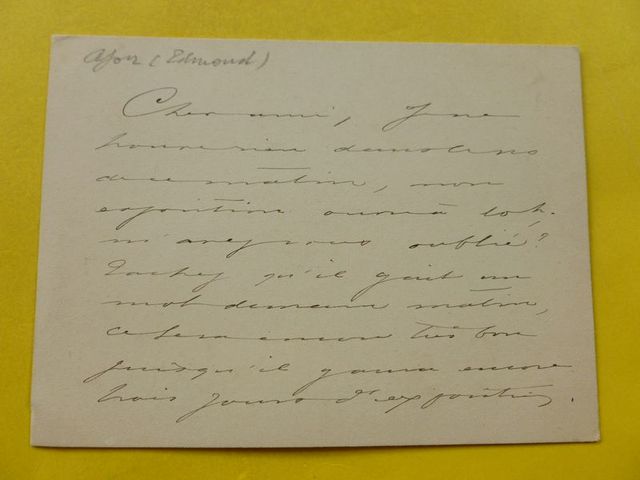 (Edmond)
Cher ami, Je ne
trouve rien dans le no
de ce matin, mon
exposition ouvre à 10 h.
m'avez vous oublié?
Tachez qu'il y ait un
mot demain matin,
ce sera encore très bon
puisqu'il y aura encore
trois jours d'exposition.